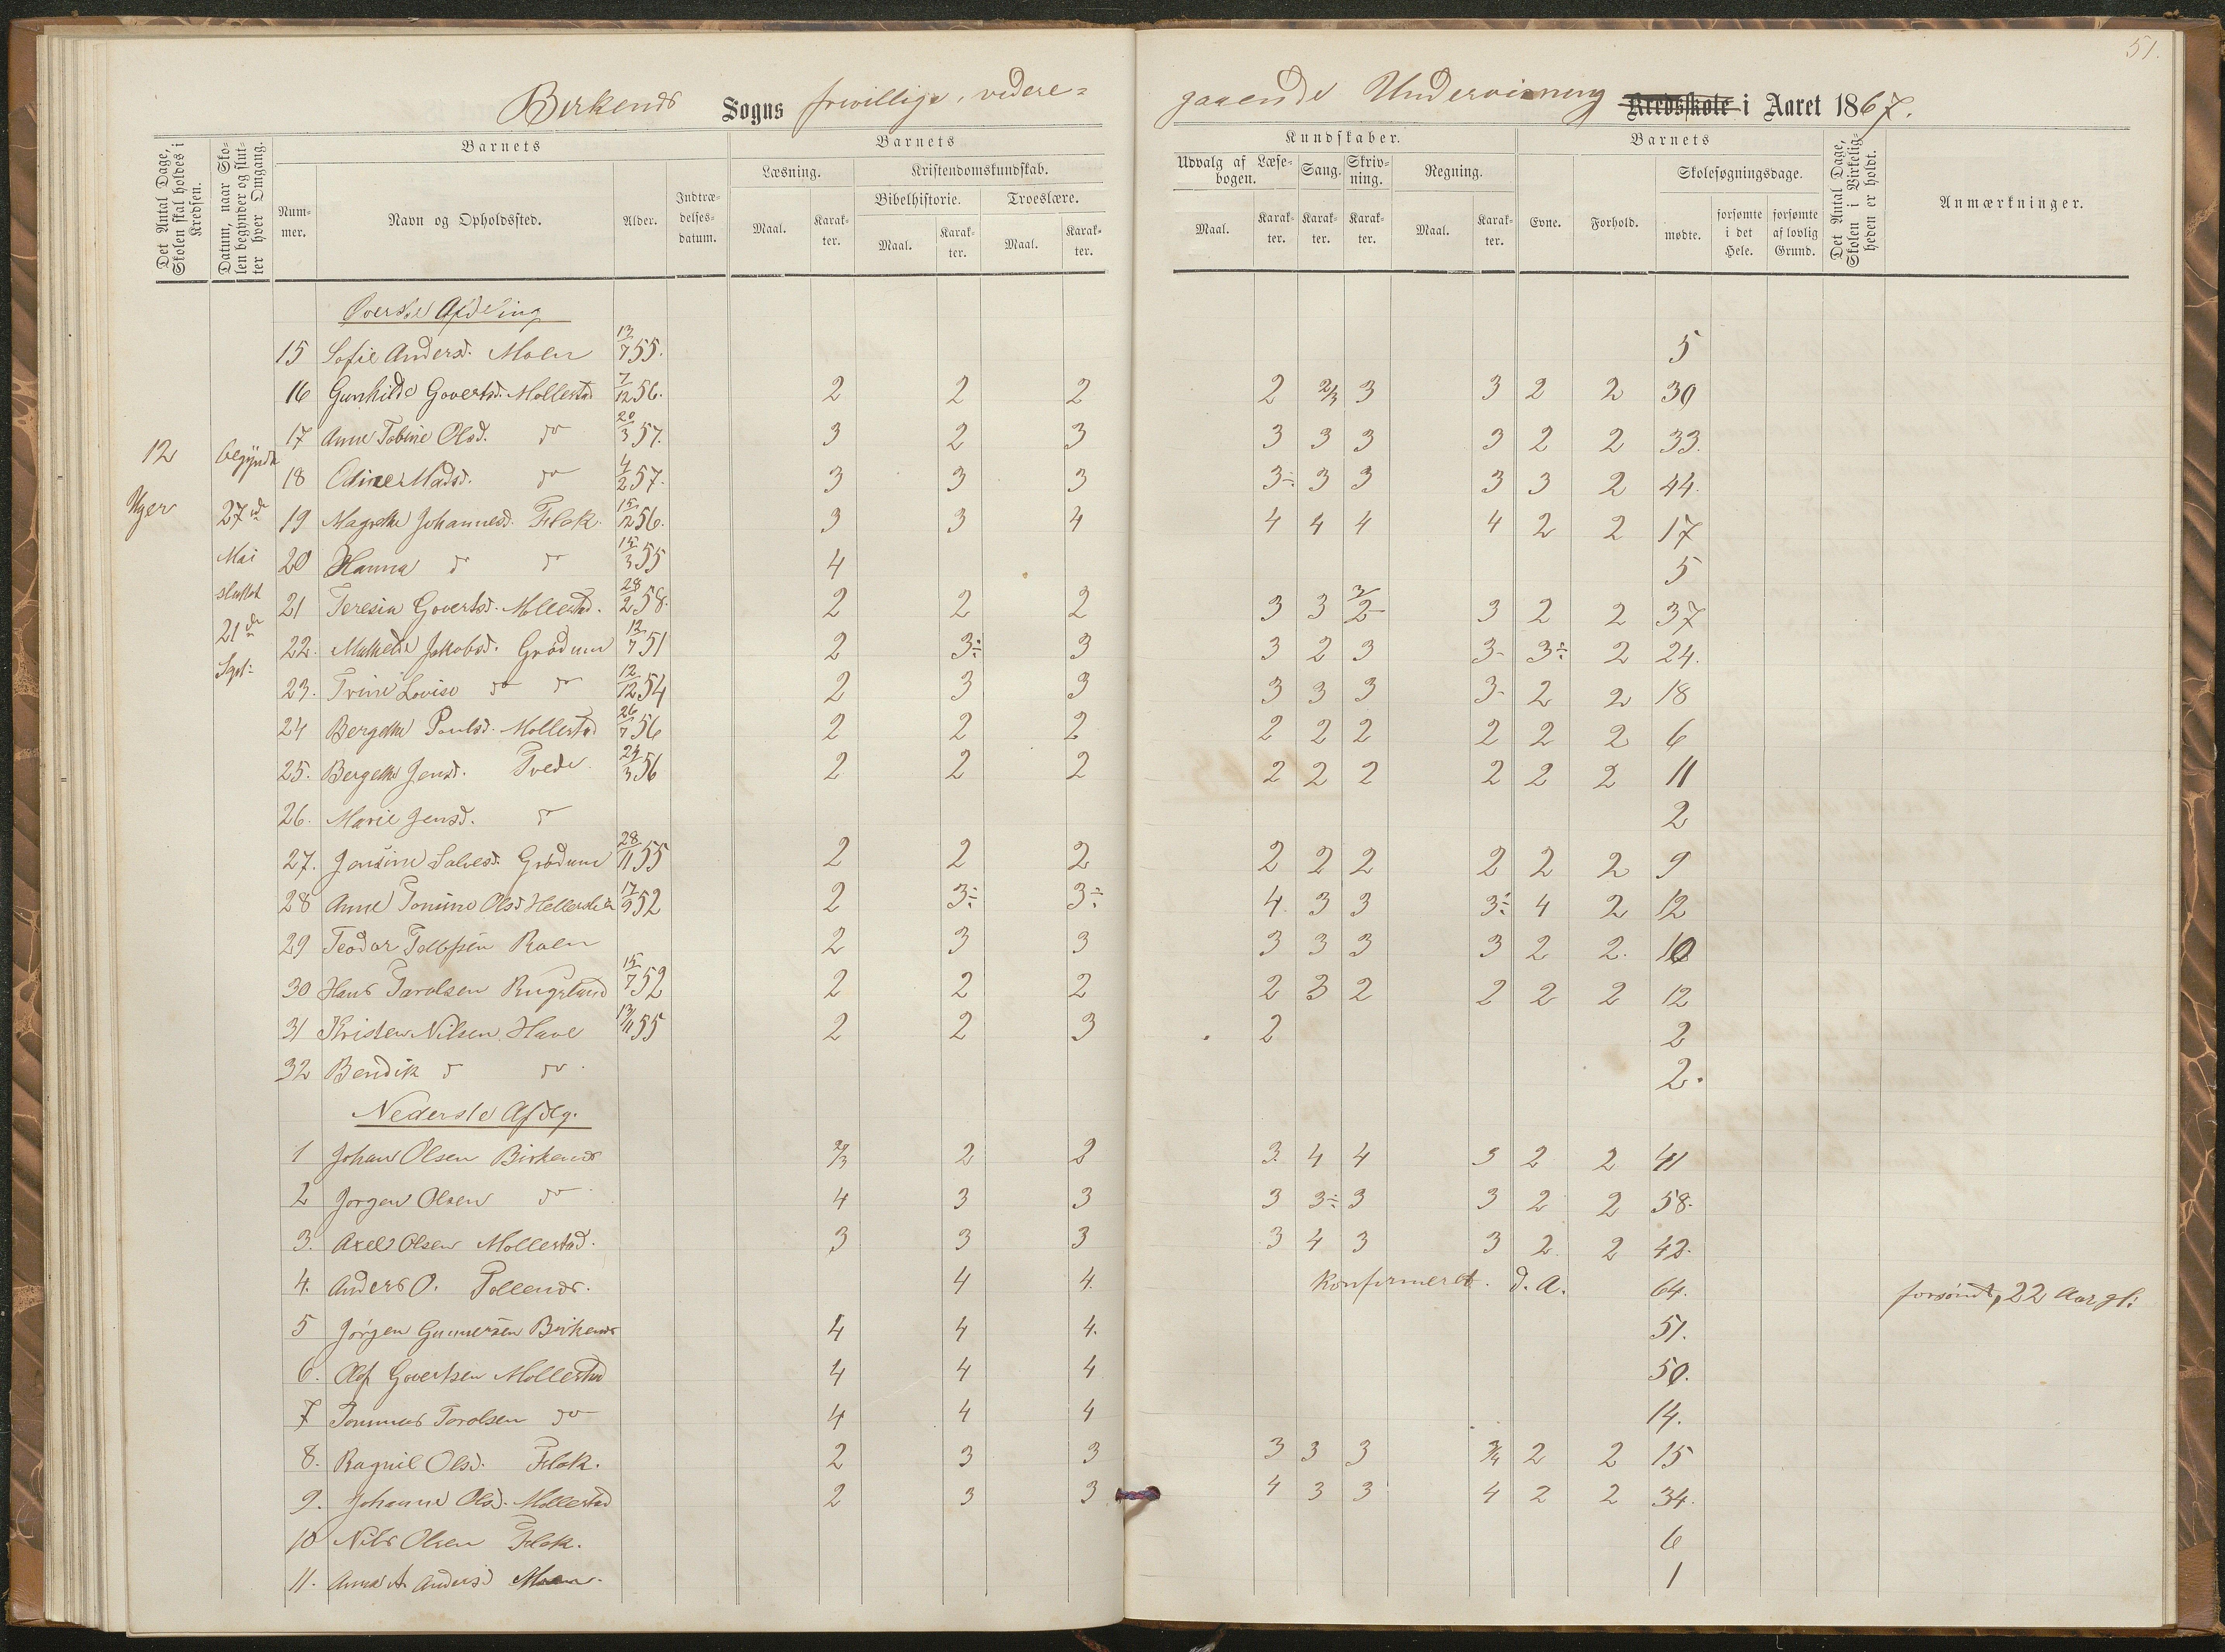 51.
Birkenes Sogns frivillige, videre=
gaaende Undervisning Kredsskole i Aaret 1867.
Det Antal Dage, Skolen skal holdes i Kredsen.
Datum, naar Skolen begynder og slutter hver Omgang.
Barnets
Nummer.
Navn og Opholdssted.
Alder.
Indtrædelsesdatum.
Barnets
Læsning.
Kristendomskundskab.
Bibelhistorie.
Troeslære.
Maal.
Karakter.
Maal.
Karakter.
Maal.
Karakter.
Kundskaber.
Udvalg af Læsebogen.
Sang.
Skrivning.
Regning.
Maal.
Karakter.
Karakter.
Karakter.
Maal.
Karakter.
Barnets
Evne.
Forhold.
Skolesøgningsdage.
mødte.
forsømte i det Hele.
forsømte af lovlig Grund.
Det Antal Dage, Skolen i Virkeligheden er holdt.
Anmærkninger.
12 Uger
begyndte 27de Mai sluttet 21de Sept:
Øverste Afdeling
15 Sofie Andersd. Moen 13/7 55. 5
16 Gunhilde Govertsd. Mollestad 7/12 56. 2 2 2 2 2/3 3 3 2 2 30
17 Anne Tobine Olsd. do 20/3 57. 3 2 3 3 3 3 3 2 2 33.
18 Oline Madsd. do 4/2 57. 3 3 3 3÷ 3 3 3 3 2 44.
19 Magrethe Johannesd. Flak. 15/12 56. 3 3 4 4 4 4 4 2 2 17
20 Hanna do do 15/3 55 4 5
21 Teresia Govertsd. Mollestad. 28/2 58. 2 2 2 3 3 3/2 3 2 2 37
22. Mathilde Jakobsd. Grødum 12/7 51 2 3÷ 3 3 2 3 3- 3÷ 2 24.
23. Trine Lovise do do 12/12 54 2 3 3 3 3 3 3- 2 2 18
24 Bergethe Poulsd. Mollestad 26/7 56 2 2 2 2 2 2 2 2 2 6
25. Bergethe Jensd. Tvede. 24/3 56 2 2 2 2 2 2 2 2 2 11
26. Marie Jensd. do 2
27. Jensine Salvesd. Grødum 28/11 55 2 2 2 2 2 2 2 2 2 9
28 Anne Tomine Olsd 17/9 52 2 3÷ 3÷ 4 3 3 3÷ 4 2 12
29 Teodor 2 3 3 3 3 3 3 2 2. 10
30 Hans Tarolsen Rugsland 15/7 52 2 2 2 2 3 2 2 2 2 12
31 Kristen Nilsen Have 13/11 55 2 2 3 2 2
32 Bendik do do 2.
Nederste Afdlg.
1 Johan Olsen Birkenes 2/3 2 2 3. 4 4 3 2 2 41
2 Jørgen Olsen do 4 3 3 3 3÷ 3 3 2 2 58.
3. Axel Olsen Mollestad. 3 3 3 3 4 3 3 2. 2 42.
4. Anders O. Tollenes. 4 4. Konfirmeret. d. A. 64. 22 Aar gl:
5 Jørgen Gunnersen Birkenes 4 4 4. 51.
6. Olof Govertsen Mollestad 4 4 4 50.
7 Tommas Tarolsen do 4 4 4 14.
8. Ragnil Olsd. Flak. 2 3 3 3 3 3 3/4 2 2 15
9. Johanne Olsd. Mollestad 2 3 3 4 3 3 4 2 2 34.
10 Nils Olsen Flak. 6
11. Anna A. Andersd Moen. 1